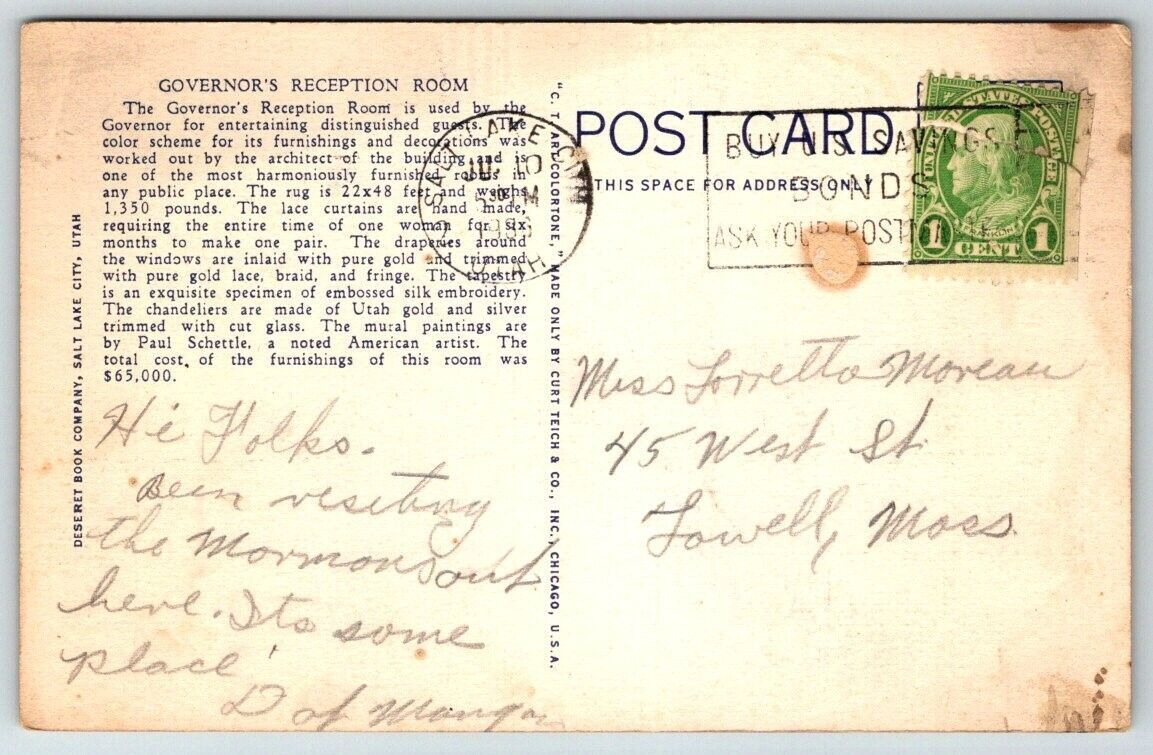 GOVERNOR'S RECEPTION ROOM
The Governor's Reception Room is used by the
Governor for entertaining distinguished guests. The
color scheme for its furnishings and decorations was
worked out by the architect of the building and is
one of the most harmoniously furnished rooms in
any public place. The rug is 22x48 feet and weighs
1,350 pounds. The lace curtains are hand made,
requiring the entire time of one woman for six
months to make one pair. The draperies around
the windows are inlaid with pure gold and trimmed
with pure gold lace, braid, and fringe. The tapestry
is an exquisite specimen of embossed silk embroidery.
The chandeliers are made of Utah gold and silver
trimmed with cut glass. The mural paintings are
by Paul Schettle, a noted American artist. The
total cost of the furnishings of this room was
$65,000.
DESERET BOOK COMPANY, SALT LAKE CITY, UTAH
Hi Folks.
Been viseting
the Mormons out
here. Its some
place!
D of
"C. T. ART-COLORTONE," MADE ONLY BY CURT TEICH & CO., INC., CHICAGO, U.S.A.
POST CARD
THIS SPACE FOR ADDRESS ONLY
SALT LAKE CITY
10
530 PM
UTAH
BUY U.S. SAVINGS
BONDS
ASK YOUR
FRANKLIN
1 CENT 1
Miss Lorretta Moreau
45 West St.
Lowell, Mass.